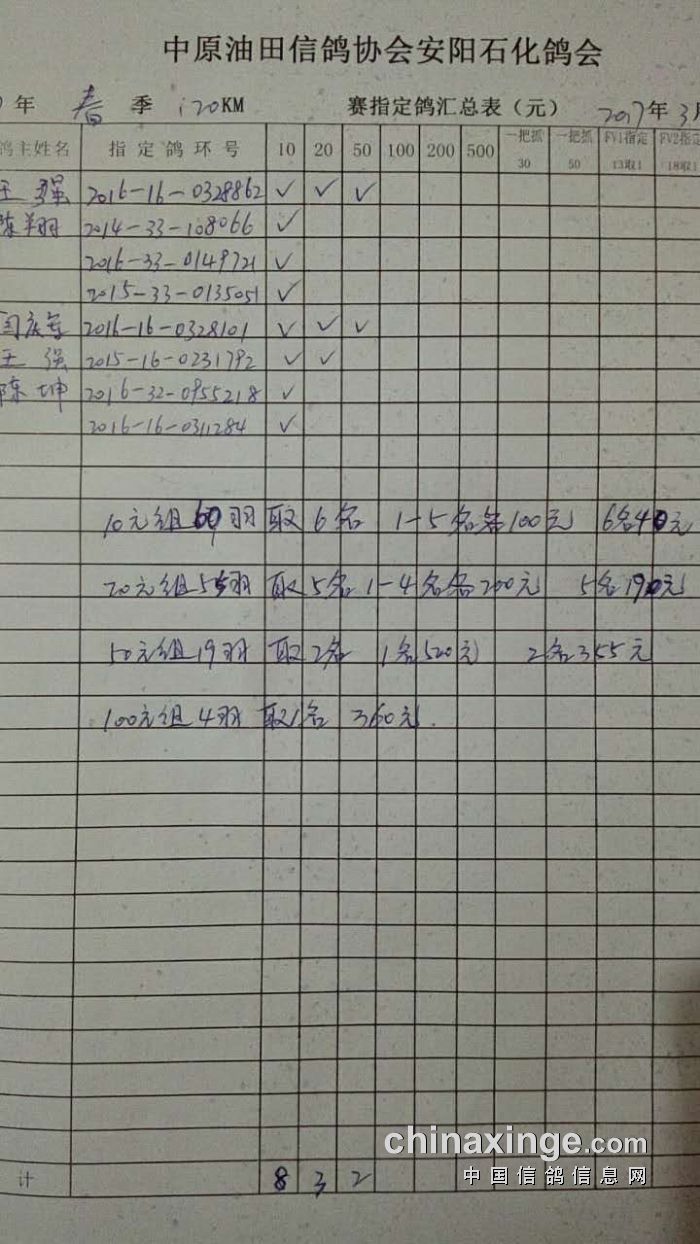 中原油田信鸽协会安阳石化鸽会
年 春 季 120KM 赛指定鸽汇总表（元） 2017年3月
鸽主姓名 指定鸽环号 10 20 50 100 200 500 一把抓30 一把抓50 FV1指定13取1 FV2指定18取1
王强 2016-16-0328862 ✓ ✓ ✓
陈翔羽 2014-33-108066 ✓
2016-33-0149721 ✓
2015-33-0135051 ✓
闫庆军 2016-16-0328101 ✓ ✓ ✓
王强 2015-16-0231792 ✓ ✓
陈坤 2016-32-0955218 ✓
2016-16-0311284 ✓
10元组60羽 取6名 1-5名各100元 6名40元
20元组55羽 取5名 1-4名各200元 5名190元
50元组19羽 取2名 1名520元 2名355元
100元组4羽 取1名 360元.
计 8 3 2
chinaxinge.com
中国信鸽信息网